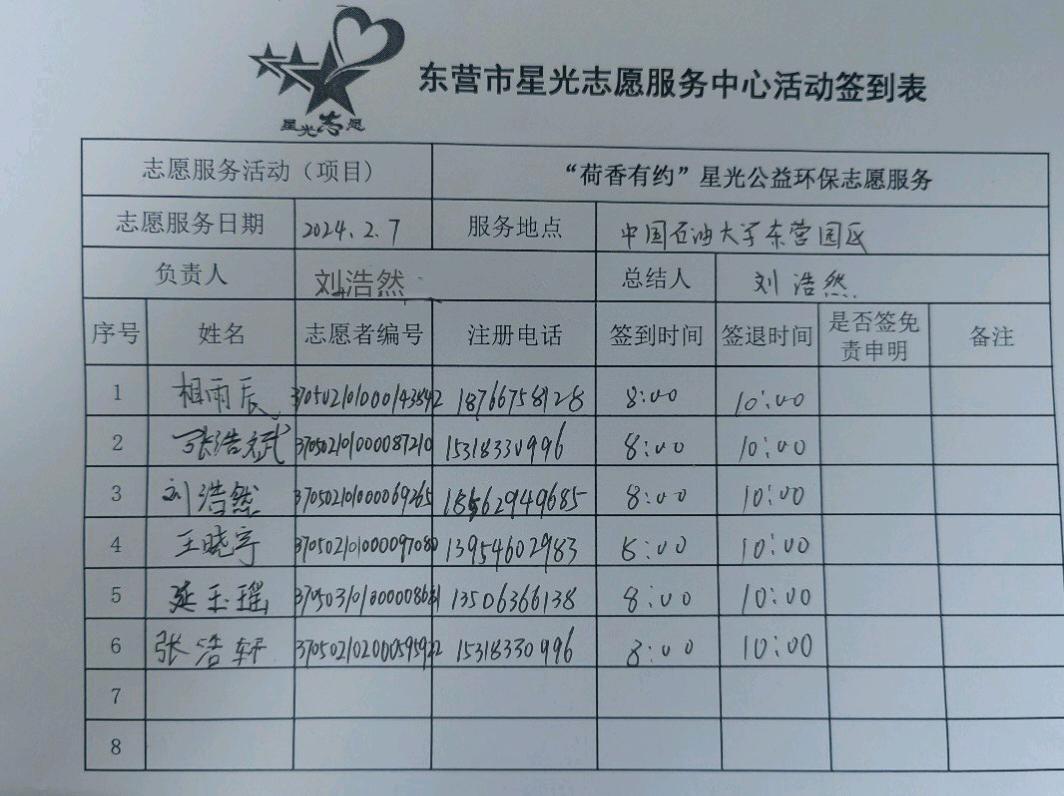 星光志愿
东营市星光志愿服务中心活动签到表
志愿服务活动（项目） “荷香有约”星光公益环保志愿服务
志愿服务日期 2024.2.7 服务地点 中国石油大学东营园区
负责人 刘浩然 总结人 刘浩然
序号 姓名 志愿者编号 注册电话 签到时间 签退时间 是否签免责申明 备注
1 相雨辰 18766758128 8:00 10:00
2 张浩斌 370502101000087210 15318330996 8:00 10:00
3 刘浩然 370502101000069265 18562949685 8:00 10:00
4 王晓宇 370502101000097080 13954602983 8:00 10:00
5 延玉瑶 13506366138 8:00 10:00
6 张浩轩 15318330996 8:00 10:00
7
8